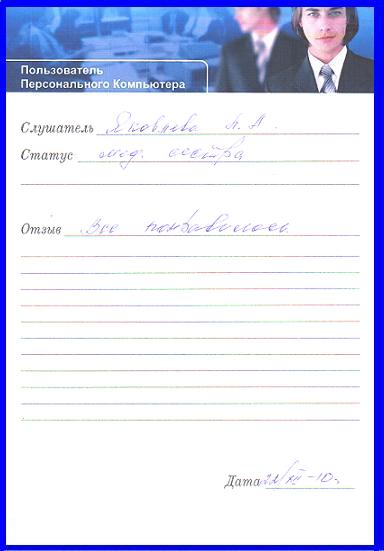 Пользователь
Персонального Компьютера
Слушатель Яковлева А. А.
Статус мед. сестра
Отзыв Все понравилось
Дата 22/XII-10г